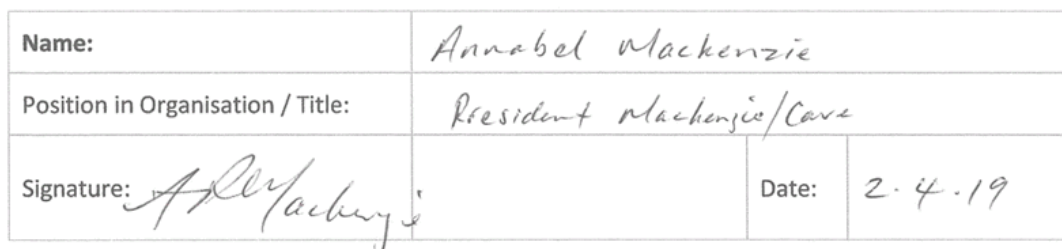 Name: Annabel Mackenzie
Position in Organisation / Title: President Mackenzie/Cave
Signature: Mackenzie Date: 2.4.19